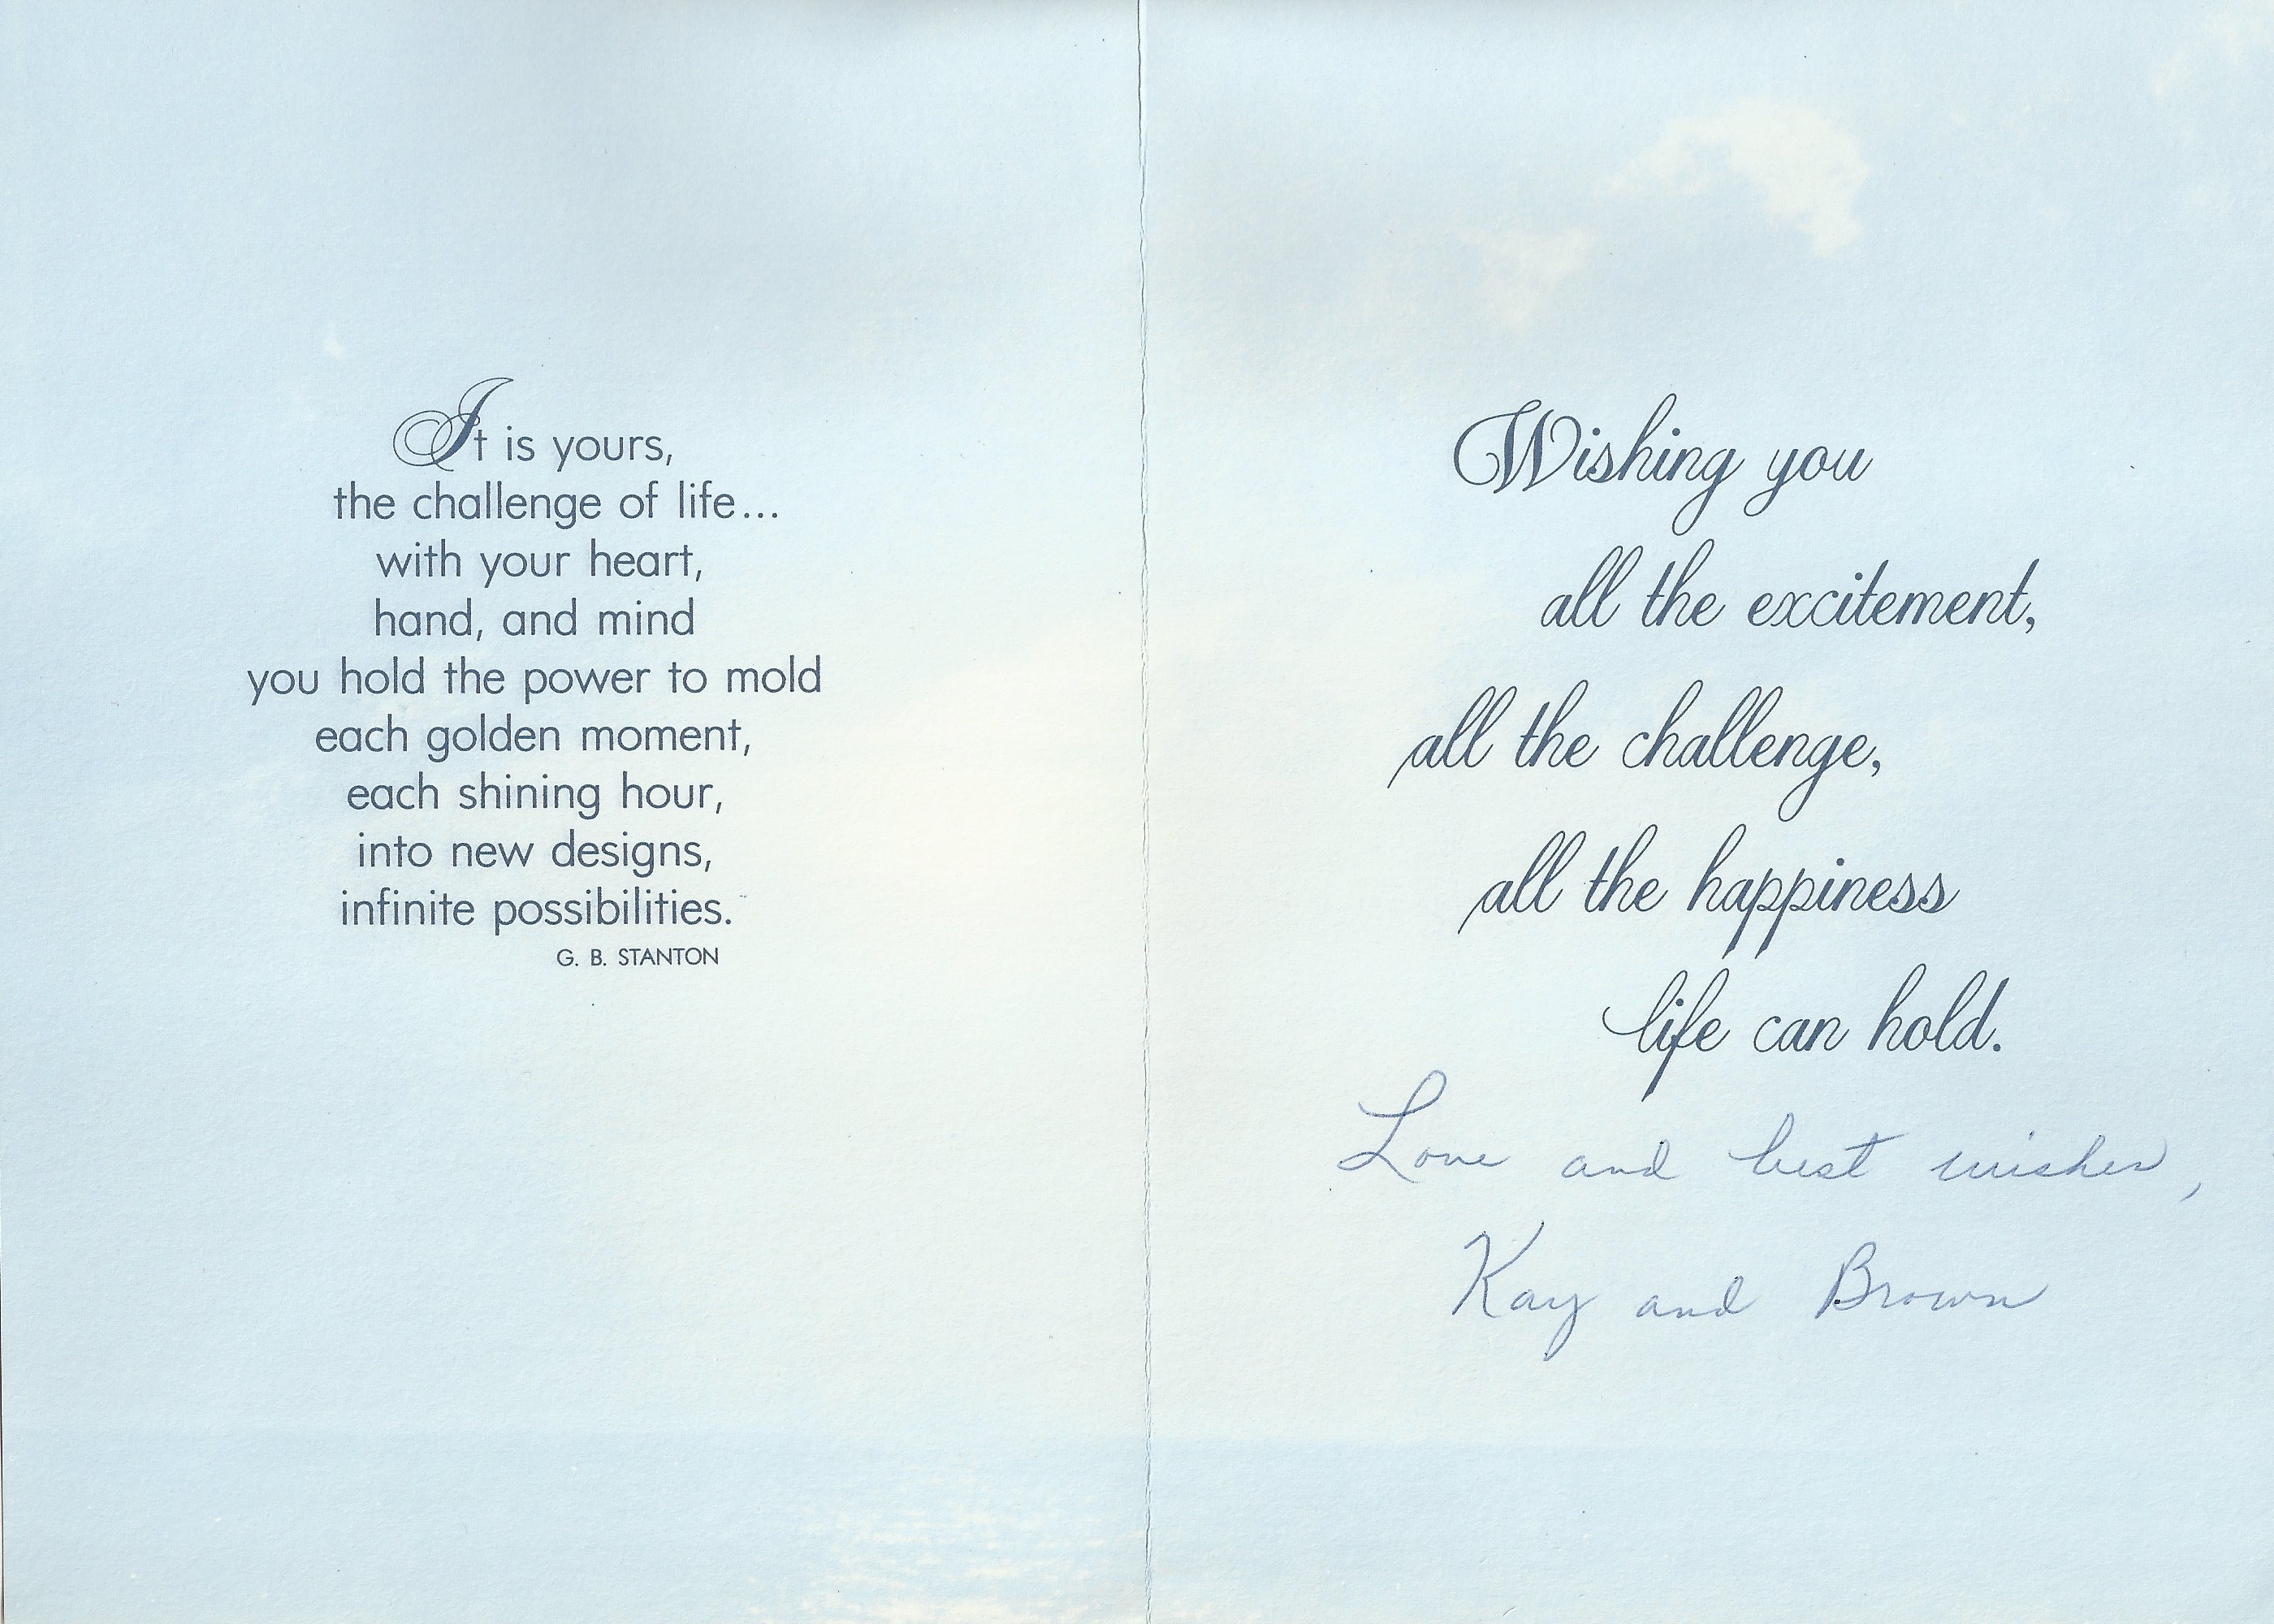 It is yours,
the challenge of life...
with your heart,
hand, and mind
you hold the power to mold
each golden moment,
each shining hour,
into new designs,
infinite possibilities.
G. B. STANTON
Wishing you
all the excitement,
all the challenge,
all the happiness
life can hold.
Love and best wishes,
Kay and Brown